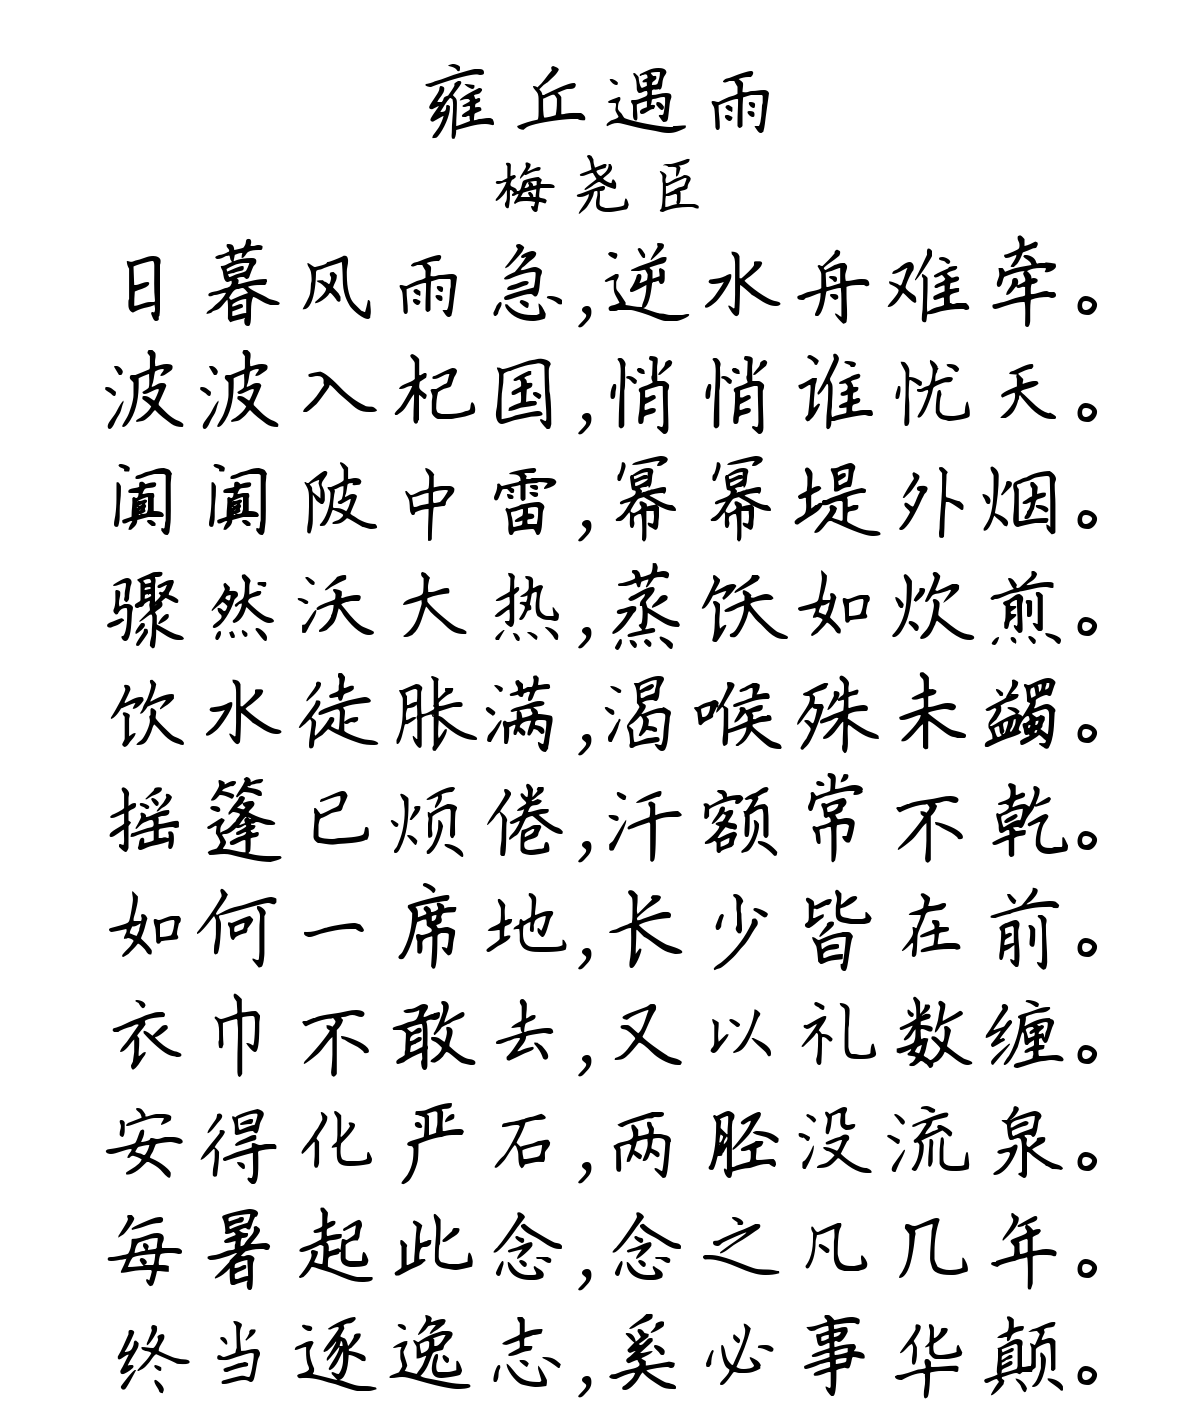 雍丘遇雨
梅尧臣
日暮风雨急,逆水舟难牵。
波波入杞国,悄悄谁忧天。
阗阗陂中雷,幂幂堤外烟。
骤然沃大热,蒸饫如炊煎。
饮水徒胀满,渴喉殊未蠲。
摇篷已烦倦,汗额常不乾。
如何一席地,长少皆在前。
衣巾不敢去,又以礼数缠。
安得化严石,两胫没流泉。
每暑起此念,念之凡几年。
终当逐逸志,奚必事华颠。